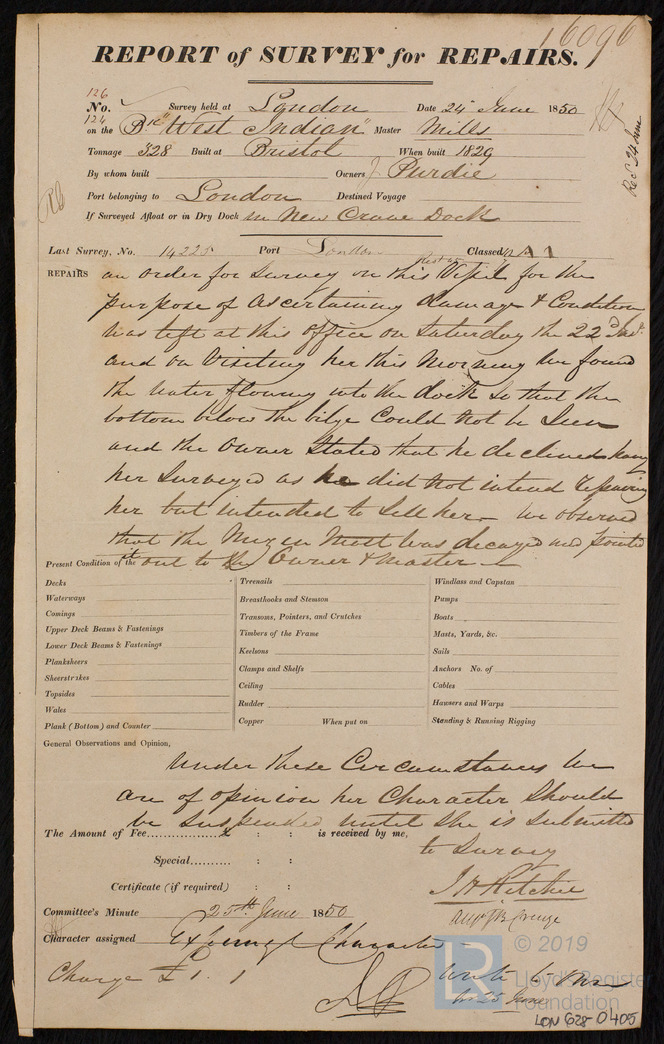 16096
REPORT of SURVEY for REPAIRS.
126
No. Survey held at London Date 24 June 1850
124
on the Bk "West Indian" Master Mills
Recd 24 June
Tonnage 328 Built at Bristol When built 1829
By whom built Owners J Purdie
Port belonging to London Destined Voyage
If Surveyed Afloat or in Dry Dock in New Crane Dock
Last Survey, No. 14225 Port London Classed A1
REPAIRS an order for Survey on this Vessel for the
purpose of ascertaining damage & Condition
was left at this office on Saturday the 22nd Inst.
and on Visiting her this Morning we found
the water flowing into the dock so that the
bottom below the bilge Could not be Seen
and the Owner Stated that he declined having
her Surveyed as he did not intend repairing
her but intended to Sell her - We observed
that the Mizen Mast was decayed and pointed
Present Condition of the it out to the Owner & Master
Decks Treenails Windlass and Capstan
Waterways Breasthooks and Stemson Pumps
Comings Transoms, Pointers, and Crutches Boats
Upper Deck Beams & Fastenings Timbers of the Frame Masts, Yards, &c.
Lower Deck Beams & Fastenings Keelsons Sails
Planksheers Clamps and Shelfs Anchors No. of
Sheerstrakes Ceiling Cables
Topsides Rudder Hawsers and Warps
Wales Copper When put on Standing & Running Rigging
Plank (Bottom) and Counter
General Observations and Opinion,
Under these Circumstances we
are of opinion her Character Should
be Suspended until She is Submitted
to Survey
The Amount of Fee..................£ : : is received by me,
Special.......... : :
J H Ritchie
Certificate (if required) : :
Committee's Minute 25th June 1850
Character assigned Expunge Character
Charge £1. 1
Write to Mr
25 June
© 2019
LR
Lloyd's Register
Foundation
LON 628-0405